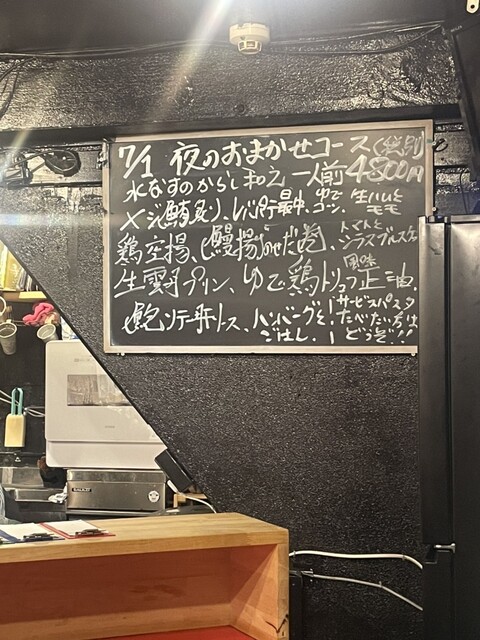 7/1 夜のおまかせコース(税別)
水なすのからし和え 一人前4800円
メジ鮪炙り、レバ最中、ゆでコン、生ハムとモモ
鶏唐揚、鰻揚だせだ巻、トマトとシラスブルスケ
生雲丹プリン、ゆで鶏トリュフ風味正油、
鮑ソテー肝ソース、ハンバーグと!サービスパスタ
ごはん!たべたい方は
どうぞ!!